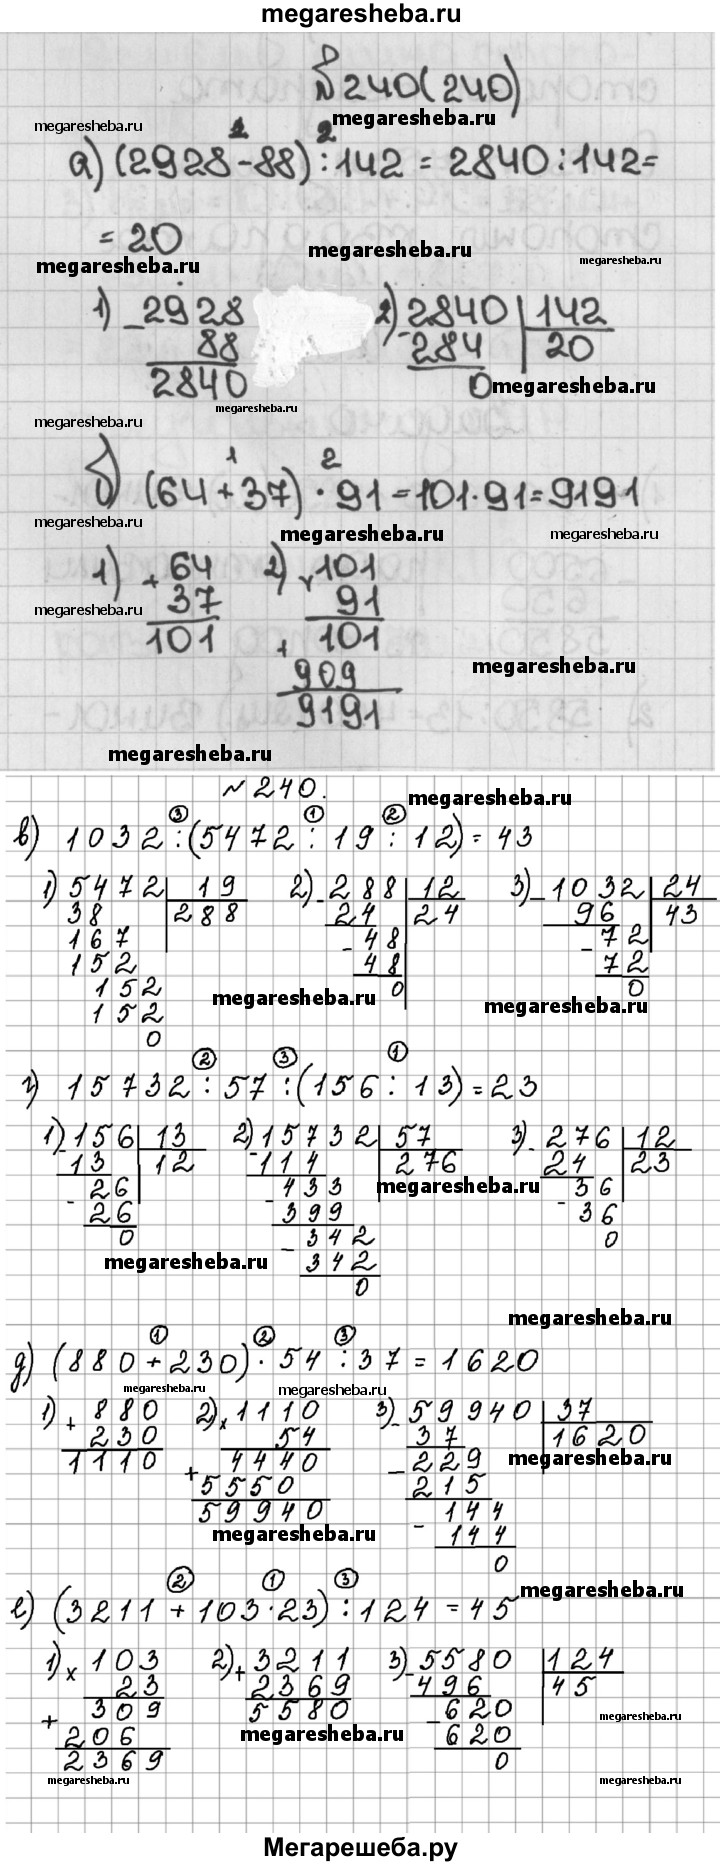 megaresheba.ru
№240(240)
megaresheba.ru megaresheba.ru
1 2
а) (2928-88):142 = 2840:142=
= 20
megaresheba.ru megaresheba.ru megaresheba.ru
1) -2928 2) 2840 | 142
88 -284 | 20
2840 0 megaresheba.ru
megaresheba.ru
megaresheba.ru
1 2
б) (64+37)·91=101·91=9191
megaresheba.ru megaresheba.ru megaresheba.ru
1) + 64 2) x 101
37 91
101 + 101
909
9191
megaresheba.ru megaresheba.ru
megaresheba.ru
№ 240.
megaresheba.ru
3 1 2
в) 1032:(5472:19:12)=43
1) 5472 | 19 2) -288 | 12 3) -1032 | 24
38 | 288 24 | 24 96 | 43
167 -48 -72
152 48 72
152 0 0
152
0
megaresheba.ru megaresheba.ru
2 3 1
г) 15732:57:(156:13)=23
1) -156 | 13 2) -15732 | 57 3) -276 | 12
13 | 12 114 | 276 24 | 23
-26 -433 -36
26 399 36
0 -342 0
342
0
megaresheba.ru megaresheba.ru
megaresheba.ru
1 2 3
д) (880+230)·54:37=1620
megaresheba.ru megaresheba.ru
1) + 880 2) x 1110 3) -59940 | 37
230 54 37 | 1620
1110 4440 -229
+ 5550 215
59940 -144
144
0
megaresheba.ru megaresheba.ru
megaresheba.ru
2 1 3
е) (3211+103·23):124=45
1) x 103 2) + 3211 3) -5580 | 124
23 2369 496 | 45
+ 309 5580 -620
206 620
2369 0
megaresheba.ru megaresheba.ru
megaresheba.ru megaresheba.ru
Мегарешеба.ру